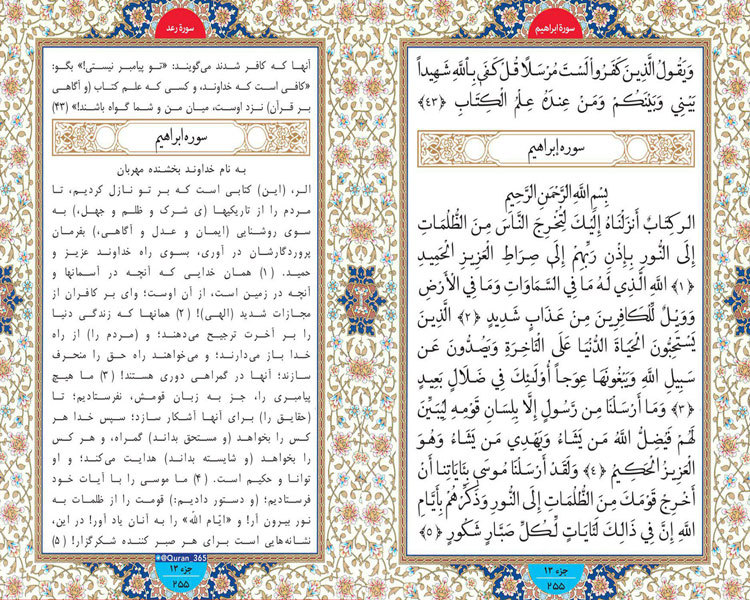 سورهٔ ابراهیم
وَيَقُولُ الَّذِينَ كَفَرُوا لَسْتَ مُرْسَلًا قُلْ كَفَىٰ بِاللَّهِ شَهِيدًا
بَيْنِي وَبَيْنَكُمْ وَمَنْ عِنْدَهُ عِلْمُ الْكِتَابِ ﴿۴۳﴾
سوره إبراهيم
بِسْمِ اللَّهِ الرَّحْمَنِ الرَّحِيمِ
الر كِتَابٌ أَنْزَلْنَاهُ إِلَيْكَ لِتُخْرِجَ النَّاسَ مِنَ الظُّلُمَاتِ
إِلَى النُّورِ بِإِذْنِ رَبِّهِمْ إِلَىٰ صِرَاطِ الْعَزِيزِ الْحَمِيدِ
﴿۱﴾ اللَّهِ الَّذِي لَهُ مَا فِي السَّمَاوَاتِ وَمَا فِي الْأَرْضِ
وَوَيْلٌ لِلْكَافِرِينَ مِنْ عَذَابٍ شَدِيدٍ ﴿۲﴾ الَّذِينَ
يَسْتَحِبُّونَ الْحَيَاةَ الدُّنْيَا عَلَى الْآخِرَةِ وَيَصُدُّونَ عَنْ
سَبِيلِ اللَّهِ وَيَبْغُونَهَا عِوَجًا أُولَٰئِكَ فِي ضَلَالٍ بَعِيدٍ
﴿۳﴾ وَمَا أَرْسَلْنَا مِنْ رَسُولٍ إِلَّا بِلِسَانِ قَوْمِهِ لِيُبَيِّنَ
لَهُمْ فَيُضِلُّ اللَّهُ مَنْ يَشَاءُ وَيَهْدِي مَنْ يَشَاءُ وَهُوَ
الْعَزِيزُ الْحَكِيمُ ﴿۴﴾ وَلَقَدْ أَرْسَلْنَا مُوسَىٰ بِآيَاتِنَا أَنْ
أَخْرِجْ قَوْمَكَ مِنَ الظُّلُمَاتِ إِلَى النُّورِ وَذَكِّرْهُمْ بِأَيَّامِ
اللَّهِ إِنَّ فِي ذَٰلِكَ لَآيَاتٍ لِكُلِّ صَبَّارٍ شَكُورٍ ﴿۵﴾
جزء ۱۳
۲۵۵
سورهٔ رعد
آنها که کافر شدند می‌گویند: «تو پیامبر نیستی!» بگو:
«کافی است که خداوند، و کسی که علم کتاب (و آگاهی
بر قرآن) نزد اوست، میان من و شما گواه باشند!» (۴۳)
سوره ابراهیم
به نام خداوند بخشنده مهربان
الر، (این) کتابی است که بر تو نازل کردیم، تا
مردم را از تاریکیها (ی شرک و ظلم و جهل،) به
سوی روشنایی (ایمان و عدل و آگاهی،) بفرمان
پروردگارشان در آوری، بسوی راه خداوند عزیز و
حمید. (۱) همان خدایی که آنچه در آسمانها و
آنچه در زمین است، از آن اوست؛ وای بر کافران از
مجازات شدید (الهی)! (۲) همانها که زندگی دنیا
را بر آخرت ترجیح می‌دهند؛ و (مردم را) از راه
خدا باز می‌دارند؛ و می‌خواهند راه حق را منحرف
سازند؛ آنها در گمراهی دوری هستند! (۳) ما هیچ
پیامبری را، جز به زبان قومش، نفرستادیم؛ تا
(حقایق را) برای آنها آشکار سازد؛ سپس خدا هر
کس را بخواهد (و مستحق بداند) گمراه، و هر کس
را بخواهد (و شایسته بداند) هدایت می‌کند؛ و او
توانا و حکیم است. (۴) ما موسی را با آیات خود
فرستادیم؛ (و دستور دادیم:) قومت را از ظلمات به
نور بیرون آر! و «ایّام الله» را به آنان یاد آور! در این،
نشانه‌هایی است برای هر صبر کننده شکرگزار! (۵)
@Quran_365
جزء ۱۳
۲۵۵